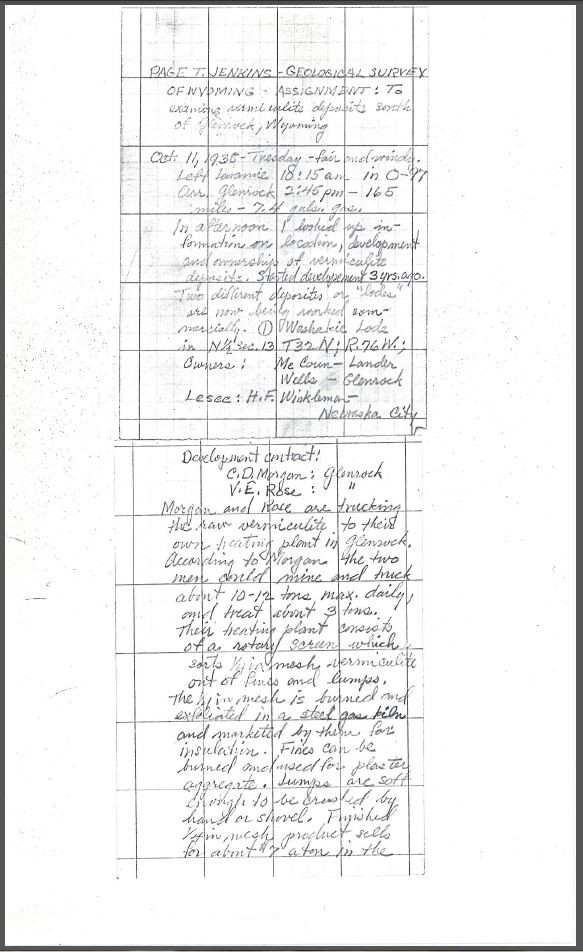 PAGE T. JENKINS - GEOLOGICAL SURVEY
OF WYOMING - ASSIGNMENT: To
examine vermiculite deposits south
of Glenrock, Wyoming
Oct. 11, 1938 - Tuesday - fair and windy.
Left Laramie 18:15 am in O-97
Arr. Glenrock 2:45 pm - 165
miles - 7.4 gals. gas.
In afternoon I looked up in-
formation on location, development
and ownership of vermiculite
deposits. Started developement 3 yrs. ago.
Two different deposits or "lodes"
are now being worked com-
mercially. ① Washakie Lode
in N½ sec. 13 T32N; R.76W.;
Owners: Mc Coun - Lander
Wells - Glenrock
Lesee: H.F. Winkleman -
Nebraska City
Development contract:
C.D. Morgan: Glenrock
V.E. Rose: "
Morgan and Rose are trucking
the raw vermiculite to their
own treating plant in Glenrock.
According to Morgan the two
men could mine and truck
about 10-12 tons max. daily,
and treat about 3 tons.
Their treating plant consists
of a rotary screen which
sorts ¼ in mesh vermiculite
out of fines and lumps.
The ¼ in mesh is burned and
exfoliated in a steel gas kiln
and marketed by them for
insulation. Fines can be
burned and used for plaster
aggregate. Lumps are soft
enough to be crushed by
hand or shovel. Finished
¼ in mesh product sells
for about $7 a ton in the